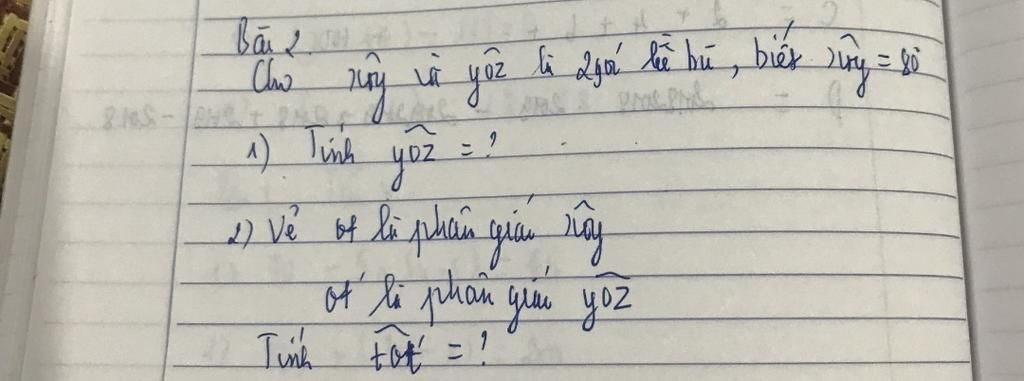 Bài 2
Cho xôy và yôz là 2 góc kề bù, biết xôy = 80
1) Tính yoz = ?
2) Vẽ ot là phân giác xôy
ot' là phân giác yoz
Tính tot' = ?